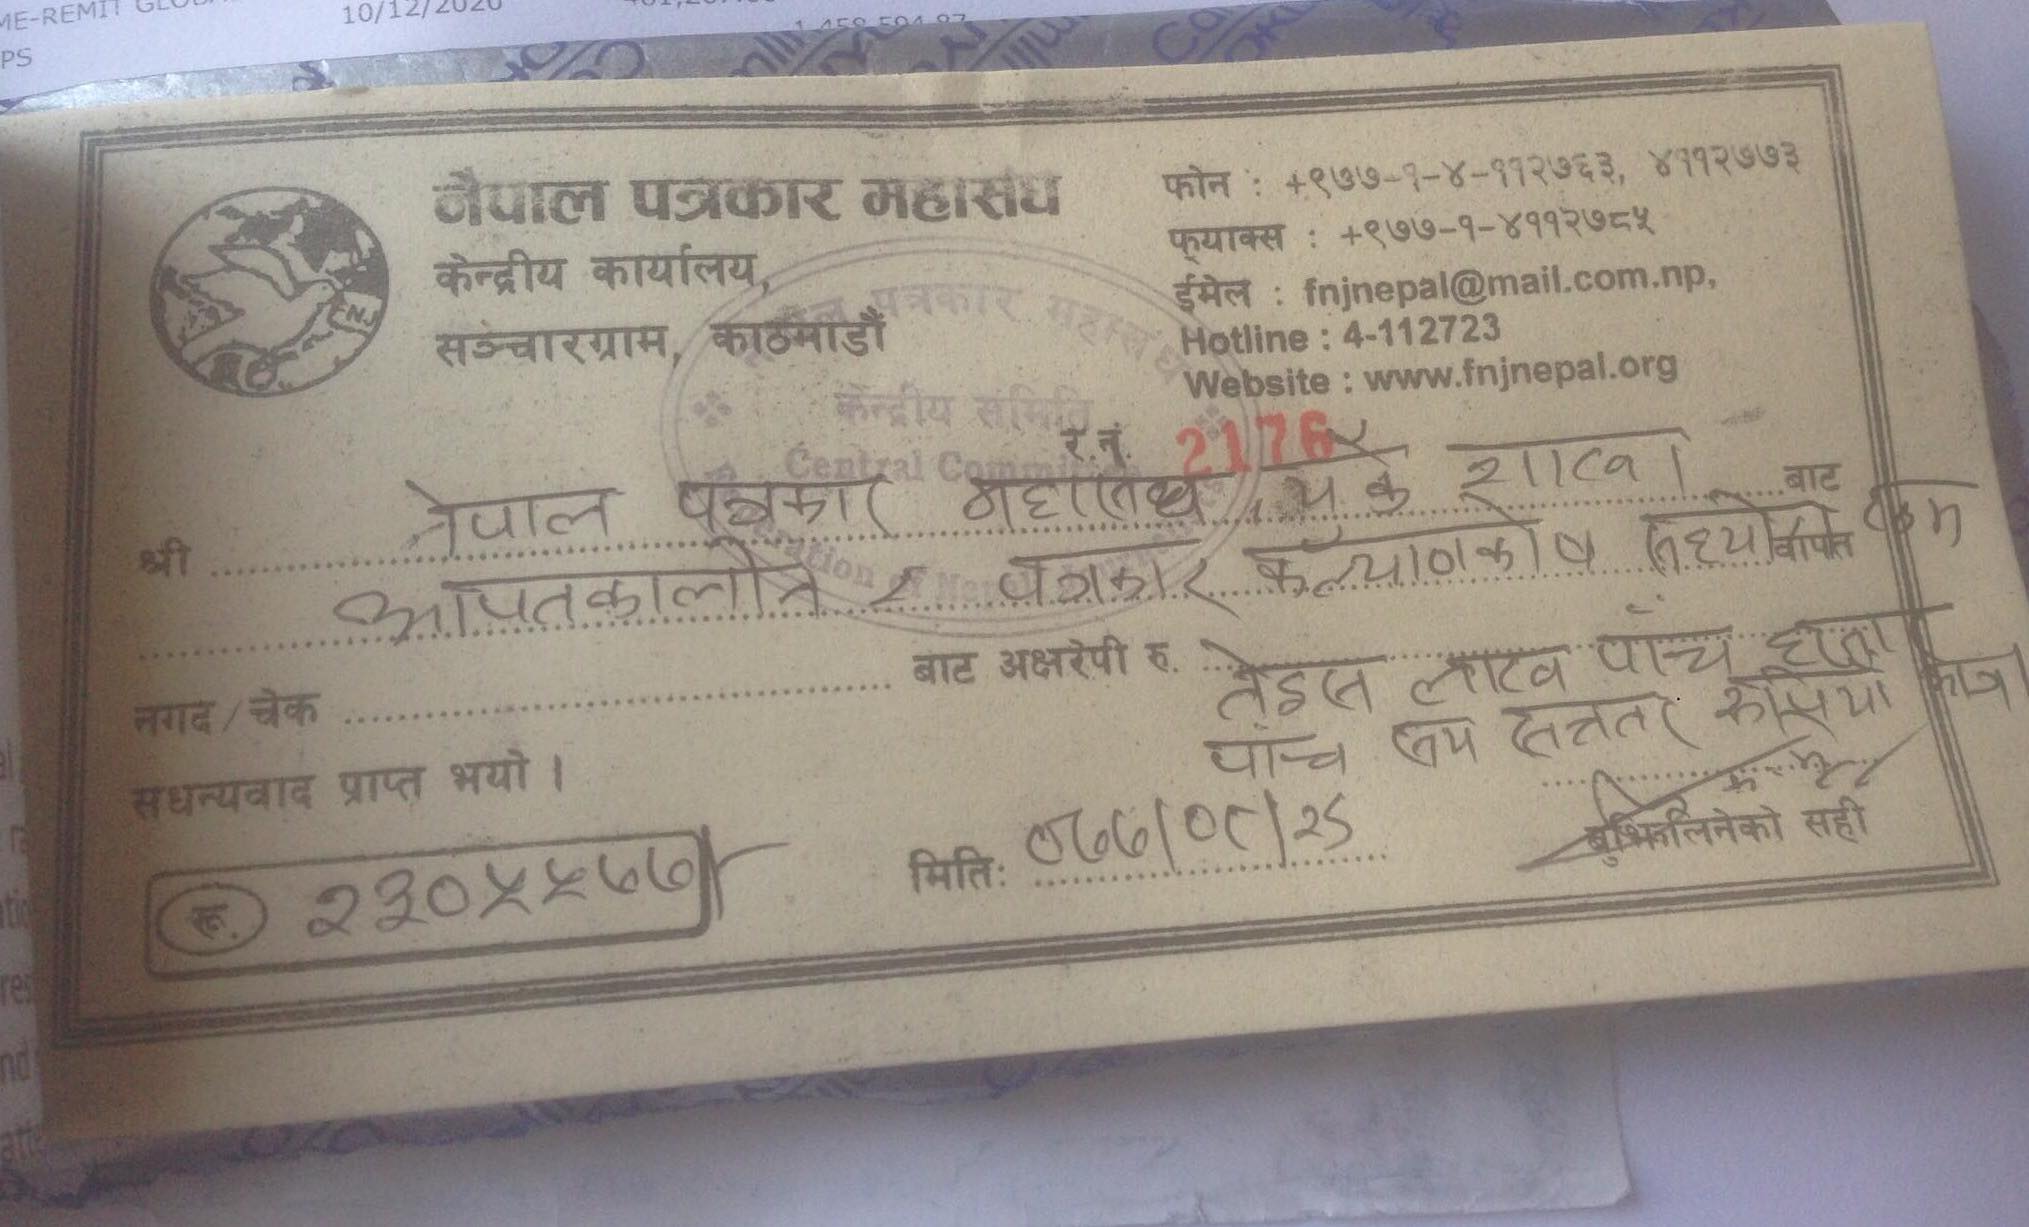 ME-REMIT
10/12/2020
PS
नेपाल पत्रकार महासंघ
केन्द्रीय कार्यालय,
सञ्चारग्राम, काठमाडौं
फोन : +९७७-१-४-११२७६३, ४११२७७३
फ्याक्स : +९७७-१-४११२७८५
ईमेल : fnjnepal@mail.com.np,
Hotline : 4-112723
Website : www.fnjnepal.org
FNJ
पत्रकार महासंघ
केन्द्रीय समिति
Central Committee
र.नं. 2176
श्री नेपाल पत्रकार महासंघ, यु.के शाखा बाट
आपतकालीन र पत्रकार कल्याणकोष वापत रकम
नगद/चेक बाट अक्षरेपी रु. तेइस लाख पाँच हजार
पाँच सय सत्ततर रूपिया मात्र
सधन्यवाद प्राप्त भयो ।
रू. २३०५५७७/-
मिति: ०७७/०८/२५
बुझिलिनेको सही